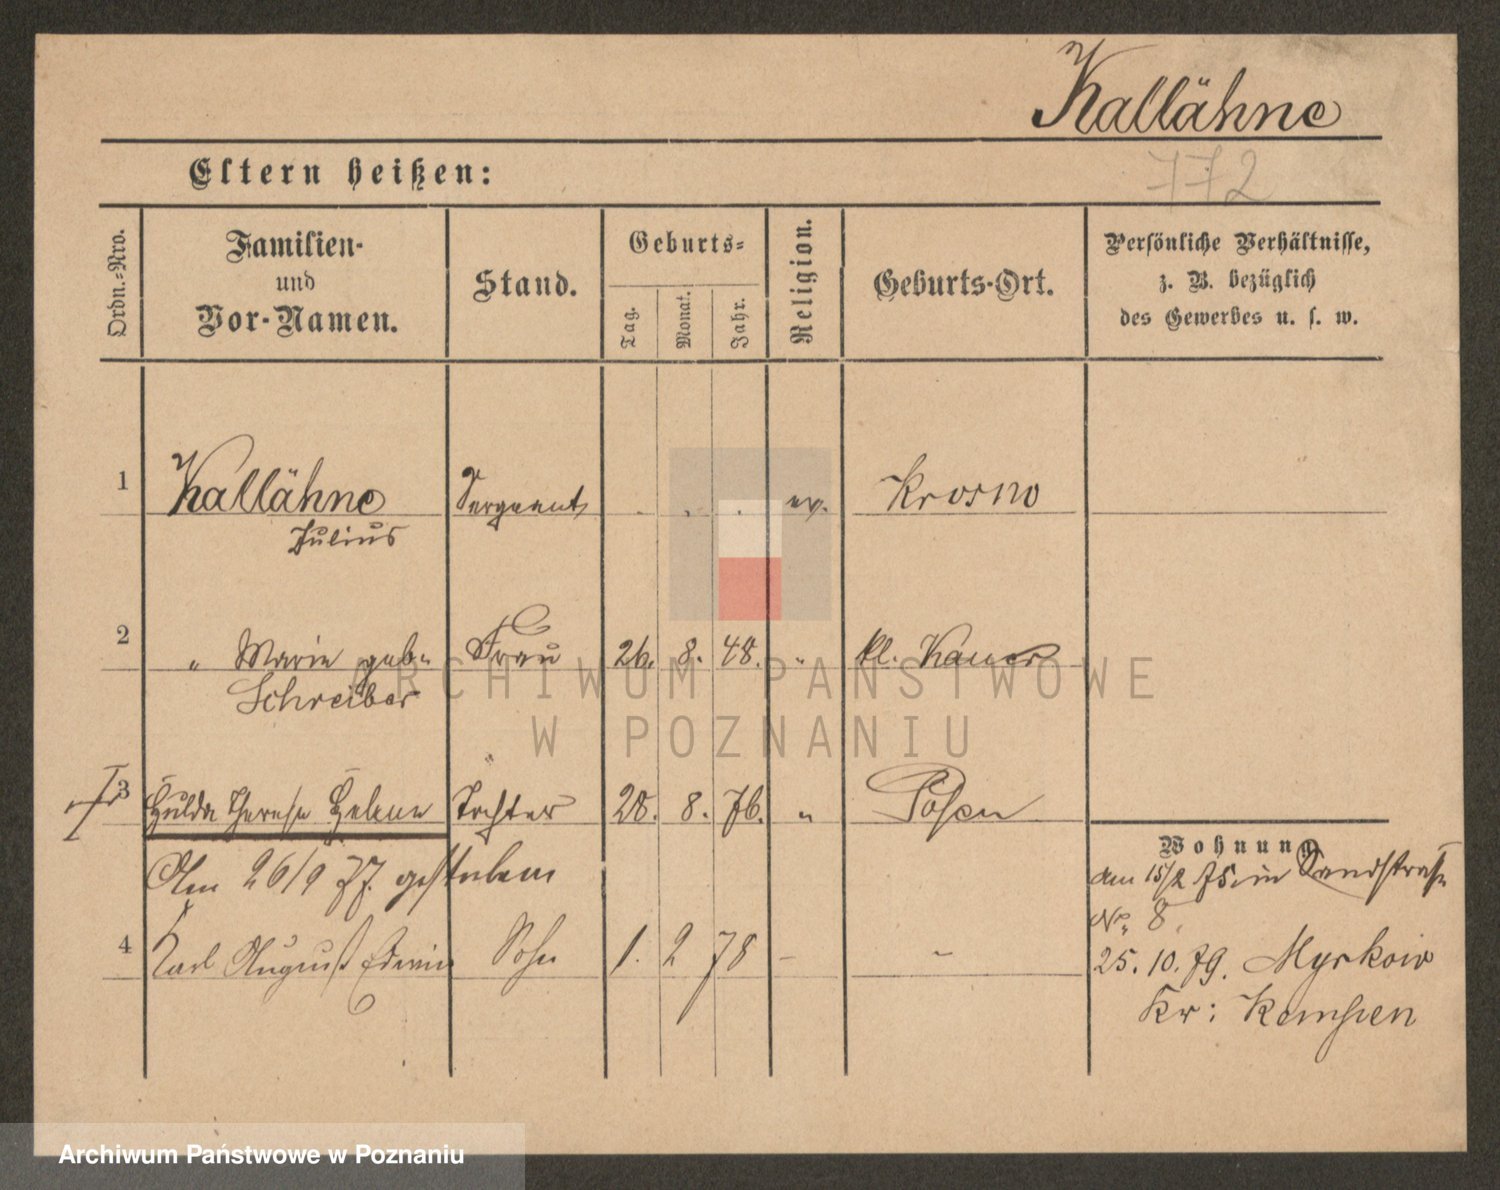 Kallähne
772
Eltern heißen:
Ordn.-Nro.
Familien-
und
Vor-Namen.
Stand.
Geburts-
Tag.
Monat.
Jahr.
Religion.
Geburts-Ort.
Persönliche Verhältnisse,
z. B. bezüglich
des Gewerbes u. s. w.
1 Kallähne Sergeant . . . ev. Krosno
Julius
2 " Marie geb. Frau 26. 8. 48. " kl. Kauer
Schreiber
3 Hulda Therese Helene Tochter 28. 8. 76. " Posen
Am 26/9 77. gestorben
4 Karl August Edwin Sohn 1. 2 78 – –
Wohnung
am 15/2 75 in Sandstraße
No. 8
25. 10. 79. Myrkow
Kr: Kempen
ARCHIWUM PAŃSTWOWE
W POZNANIU
Archiwum Państwowe w Poznaniu